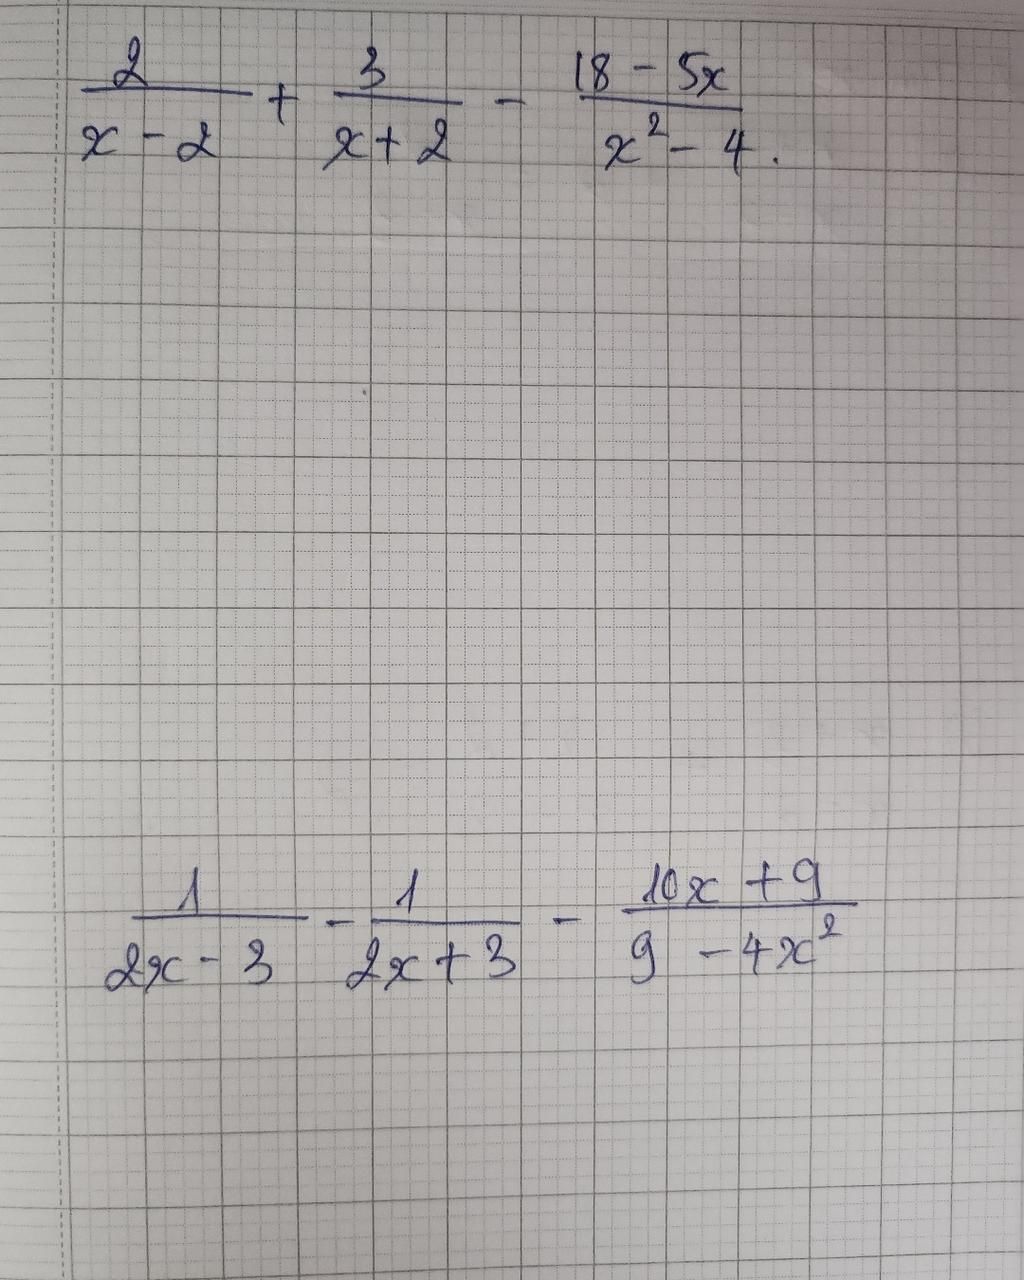 2/(x - 2) + 3/(x + 2) - (18 - 5x)/(x² - 4).
1/(2x - 3) - 1/(2x + 3) - (10x + 9)/(9 - 4x²)